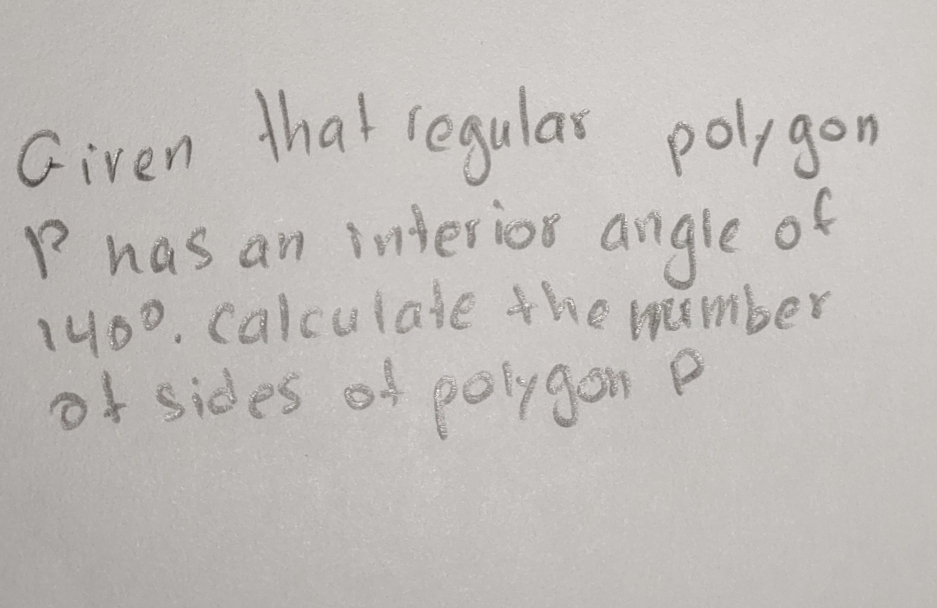 Given that regular polygon
P has an interior angle of
140°. calculate the number
of sides of polygon P